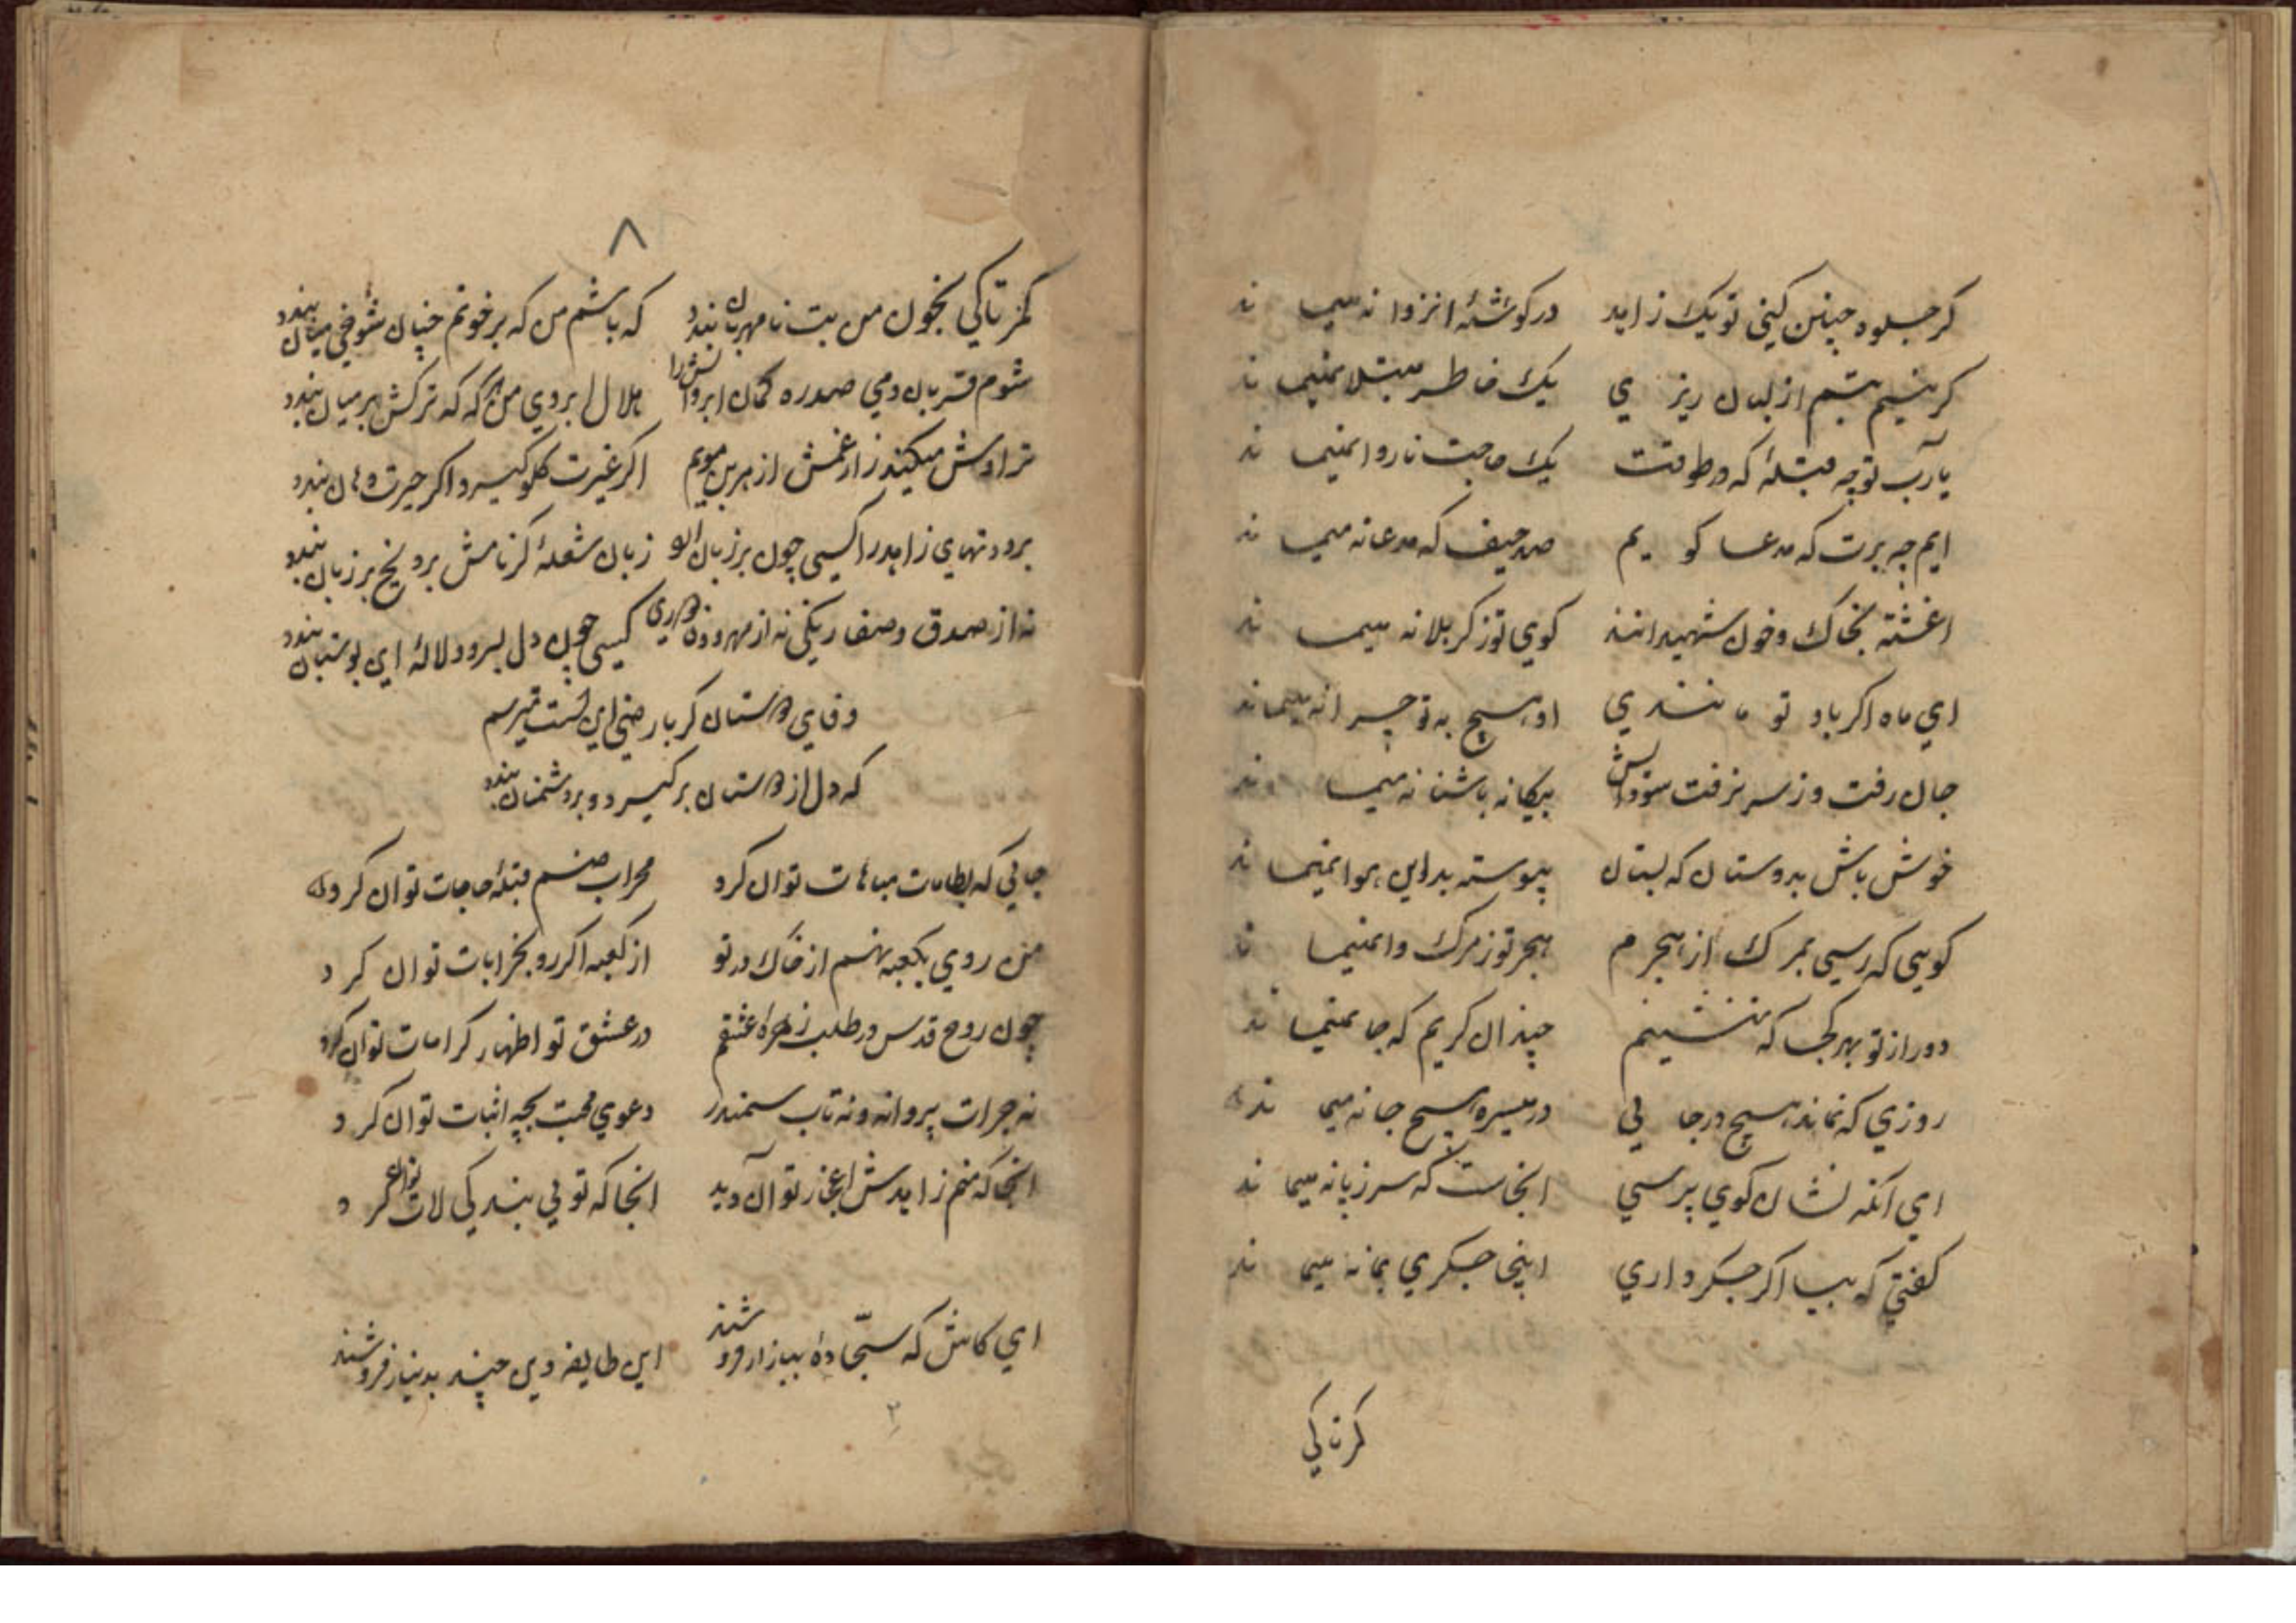 کر جلوه چنین کنی تو یک زاهد در کوشهٔ انزوا نه میما ند
کر نیم تبسم از لبان ریز ي یک خاطر مبتلا نمیما ند
یارب تو چه قبلهٔ که در طوفت یک حاجت ناروا نمیما ند
ایم چه برت که مدعا کو یم صد حیف که مدعا نه میما ند
اغشته بخاک و خون شهیدانند کوي تو ز کربلا نه میما ند
اي ماه اکر باو تو مانندي او هیچ به تو چرا نه میماند
جان رفت و ز سر نرفت سودایش بیکانه باشنا نه میما ند
خوش باش بدوستان که بستان پیوسته بداین هوا نمیما ند
کویی که رسی بمرک از هجرم هجر تو ز مرک وا نمیما ند
دور از تو بهر کجا که بنشینم چندان کریم که جا نمیما ند
روزي که نماند هیچ در جا یی در میسره هیچ جا نه میما ند
اي آنکه نشان کوي پرسی انجاست که سر ز پا نه میما ند
کفتی که بیا اکر جکر داري اینجا جکري بما نه میما ند
کمر تا کی
۸
کمر تا کی بخون من بت نامهربان بندد که باشم من که بر خونم چنان شوخی میان بندد
شوم قربان دمی صد ره کمان ابروانش را هلال ابروي من که که ترکش بر میان بندد
تراوش میکند راز غمش از هر بن مویم اکر غیرت کلو کیرد و اکر حیرت دهان بندد
برودتهاي زاهد را کسی چون بر زبان الو زبان شعلهٔ کر نامش برو یخ بر زبان بندد
نه از صدق و صفا رنکی نه از مهر و وفا بویی کسی چون دل بسرو و لالهٔ این بوستان بندد
وفاي دوستان کر بار ضی این است میترسم
که دل از دوستان بر کیرد و بر دشمنان بندد
جایی که بطامات مباهات توان کرد محراب صنم قبلهٔ حاجات توان کرد
من روي بکعبه نهم از خاک در تو از کعبه اکر رو بخرابات توان کر د
چون روح قدس در طلب زهراه عشقم در عشق تو اظهار کرامات توان کرد
نه جرات پروانه و نه تاب سمندر دعوي محبت بچه اثبات توان کر د
انجا که منم زاهدش اعجاز توان دید انجا که تویی بندکی لات توان کر د
اي کاش که سجاده ببازار فروشند این طایفه دین چند بدینار فروشند
۲